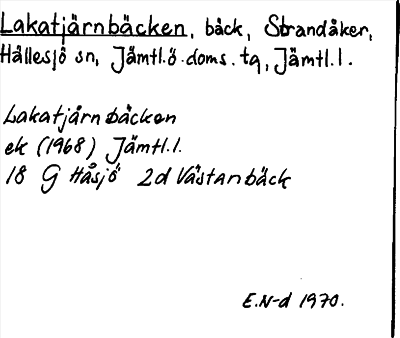 Lakatjärnbäcken, bäck, Strandåker,
Hållesjö sn, Jämtl.ö.doms.tg, Jämtl.l.
Lakatjärnbäcken
ek (1968) Jämtl.l.
18 G Håsjö 2d Västanbäck
E.N-d 1970.